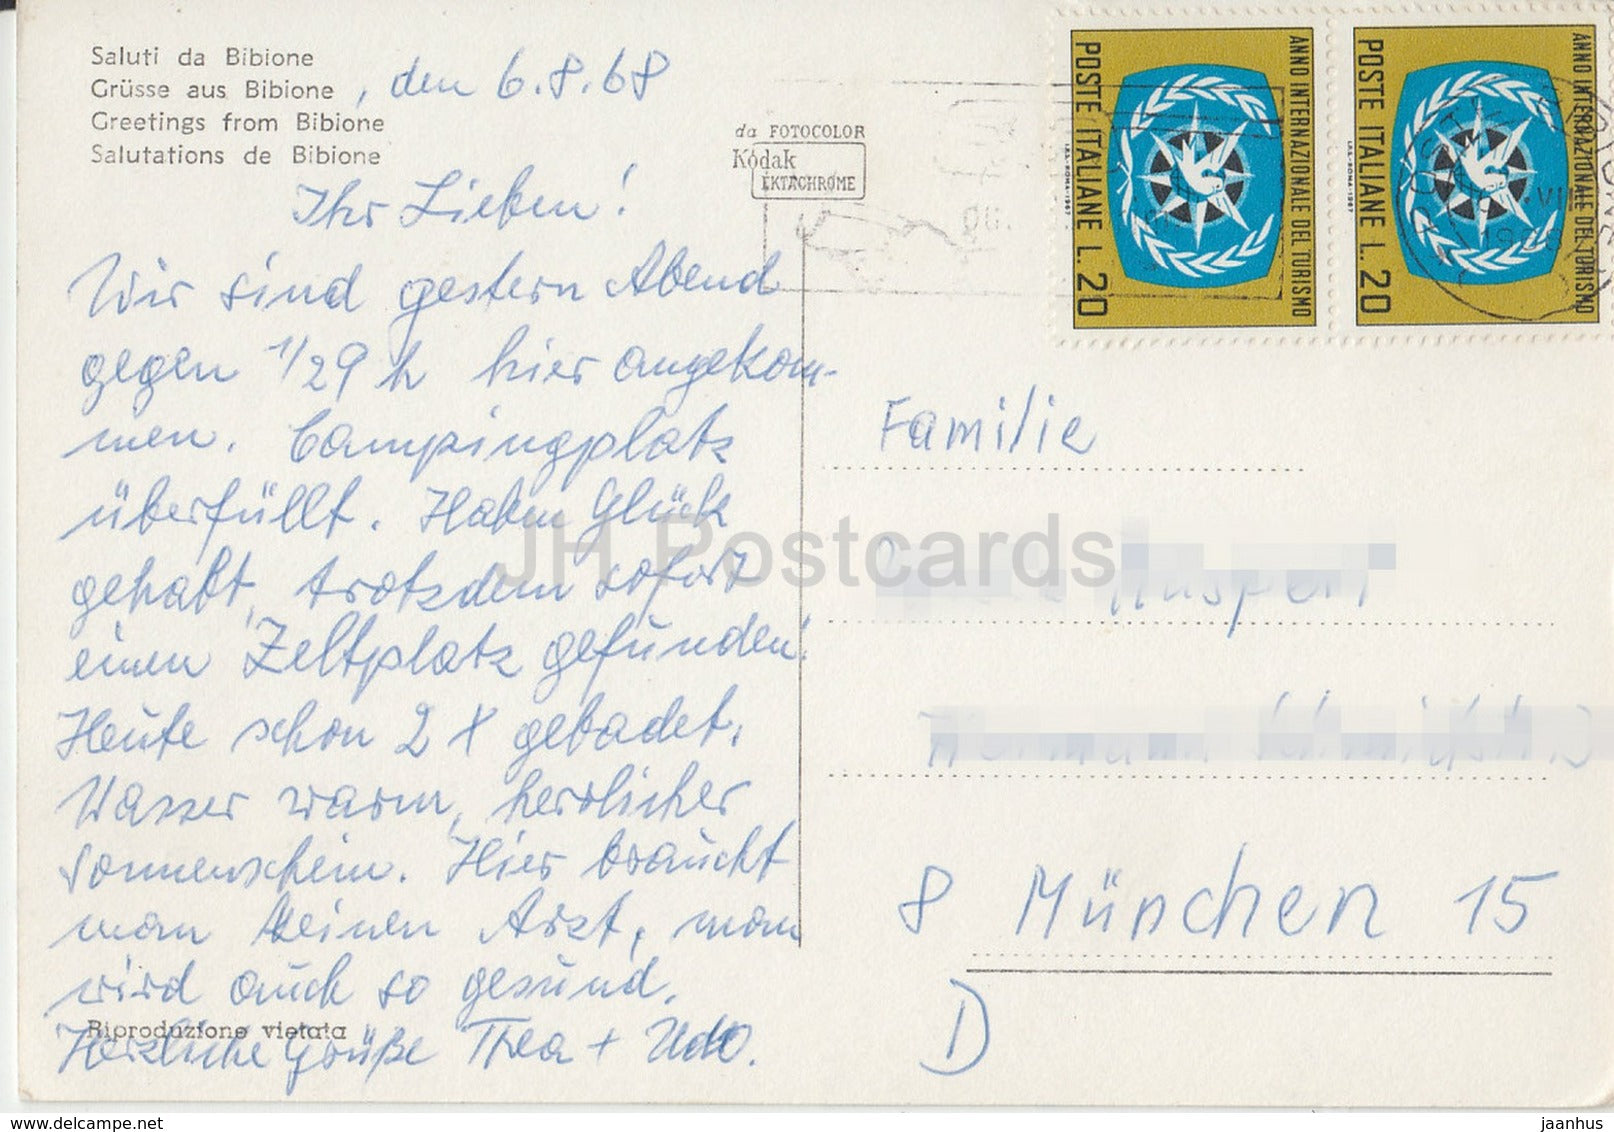 Saluti da Bibione
Grüsse aus Bibione, den 6.8.68
Greetings from Bibione
Salutations de Bibione
da FOTOCOLOR
Kodak
EKTACHROME
Ihr Lieben!
Wir sind gestern Abend
gegen 1/29 h hier angekom-
men. Campingplatz
überfüllt. Haben Glück
gehabt, trotzdem sofort
einen Zeltplatz gefunden.
Heute schon 2 x gebadet.
Wasser warm, herrlicher
Sonnenschein. Hier braucht
man keinen Arzt, man
wird auch so gesund.
Herzliche Grüße Thea + Udo.
Riproduzione vietata
POSTE ITALIANE L. 20
ANNO INTERNAZIONALE DEL TURISMO
I.P.S.-ROMA-1967
POSTE ITALIANE L. 20
ANNO INTERNAZIONALE DEL TURISMO
I.P.S.-ROMA-1967
Familie
8 München 15
D
JH Postcards
delcampe.net
jaanhus